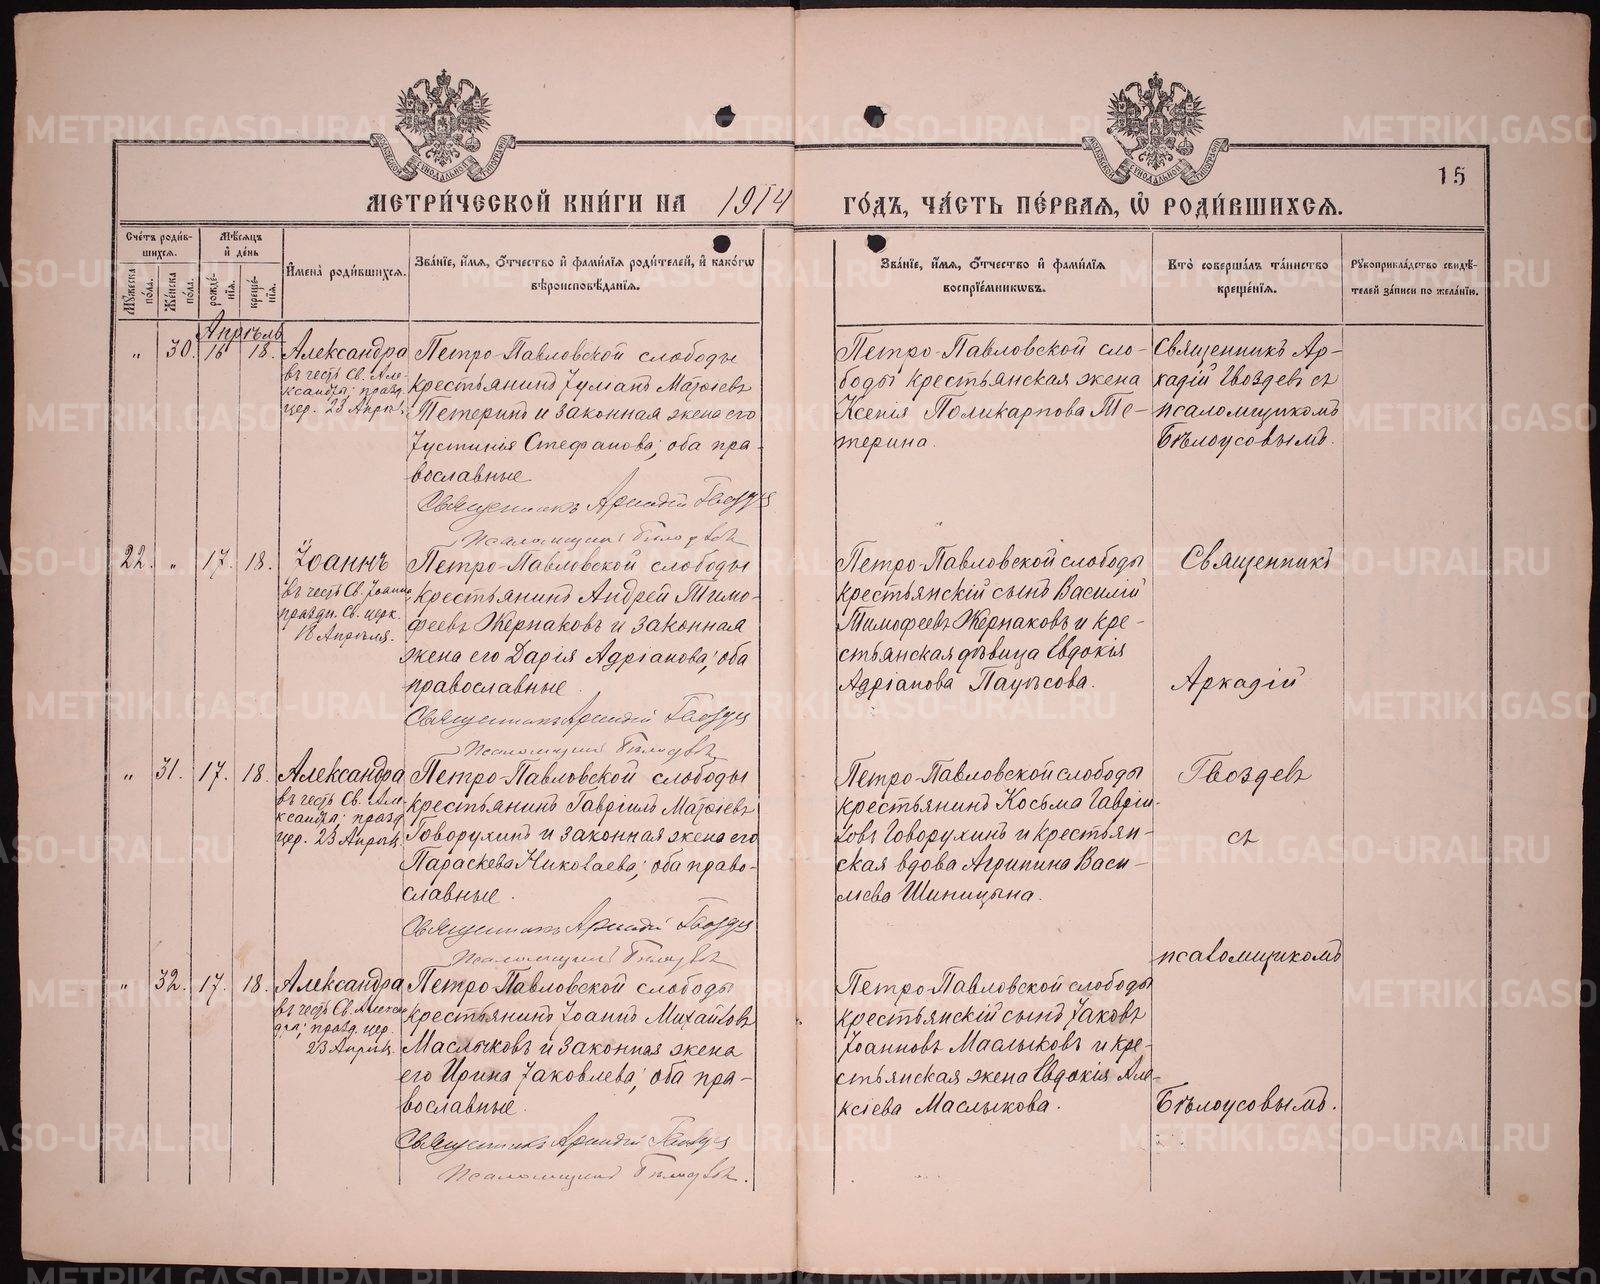 15
МЕТРИ́ЧЕСКОЙ КНИ́ГИ НА 1914 ГО́ДЪ, ЧА́СТЬ ПЕ́РВАЯ, Ѡ РОДИ́ВШИХСЯ.
Сче́тъ роди́в-
шихся.
Мꙋжеска по́ла.
Же́нска по́ла.
Мѣ́сяцъ
и҆ де́нь
рожде́-
нія.
креще́-
нія.
И҆мена̀ роди́вшихся.
Зва́нїе, и҆́мя, ѻ҆́тчество и҆ фами́лїя роди́телей, и҆ како́гѡ
вѣроисповѣ́данїя.
Зва́нїе, и҆́мя, ѻ҆́тчество и҆ фами́лїя
воспрїе́мникѡвъ.
Кто̀ соверша́лъ та́инство
креще́нїя.
Рꙋкоприкла́дство свидѣ́-
телей за́писи по жела́нїю.
Апрѣль
„ 30. 16 18. Александра
въ честь Св. Але-
ксандры; празд.
цер. 23 Апрѣ.
Петро-Павловской слободы
крестьянинъ Іуліанъ Матѳіевъ
Петеринъ и законная жена его
Іустинія Стефанова; оба пра-
вославные
Священникъ Аркадій Гвоздевъ
Псаломщикъ Бѣлоусовъ
Петро-Павловской сло-
боды крестьянская жена
Ксенія Поликарпова Пе-
терина.
Священникъ Ар-
кадій Гвоздевъ съ
псаломщикомъ
Бѣлоусовымъ.
22. „ 17. 18. Іоаннъ
въ честь Св. Іоанна
праздн. Св. церк.
18 Апрѣля.
Петро-Павловской слободы
крестьянинъ Андрей Тимо-
феевъ Жернаковъ и законная
жена его Дарія Адріанова; оба
православные
Священникъ Аркадій Гвоздевъ
Псаломщикъ Бѣлоусовъ
Петро-Павловской слободы
крестьянскій сынъ Василій
Тимофеевъ Жернаковъ и кре-
стьянская дѣвица Евдокія
Адріанова
Священникъ
Аркадій
„ 31. 17. 18. Александра
въ честь Св. Але-
ксандры; празд.
цер. 23 Апрѣл.
Петро-Павловской слободы
крестьянинъ Гавріилъ Матѳіевъ
Говорухинъ и законная жена его
Параскева Николаева; оба право-
славные.
Священникъ Аркадій Гвоздевъ
Псаломщикъ Бѣлоусовъ
Петро-Павловской слободы
крестьянинъ Косьма Гаврі-
ловъ Говорухинъ и крестьян-
ская вдова Агрипина Васи-
льева Шипицына.
Гвоздевъ
съ
псаломщикомъ
„ 32. 17. 18. Александра
въ честь Св. Алексан-
дры; празд. цер.
23 Апрѣл.
Петро-Павловской слободы
крестьянинъ Іоаннъ Михайловъ
Маслыковъ и законная жена
его Ирина Іаковлева; оба пра-
вославные.
Священникъ Аркадій Гвоздевъ
Псаломщикъ Бѣлоусовъ.
Петро-Павловской слободы
крестьянскій сынъ Іаковъ
Іоанновъ Маслыковъ и кре-
стьянская жена Евдокія Але-
ксіева Маслыкова.
Бѣлоусовымъ.
METRIKI.GASO-URAL.RU